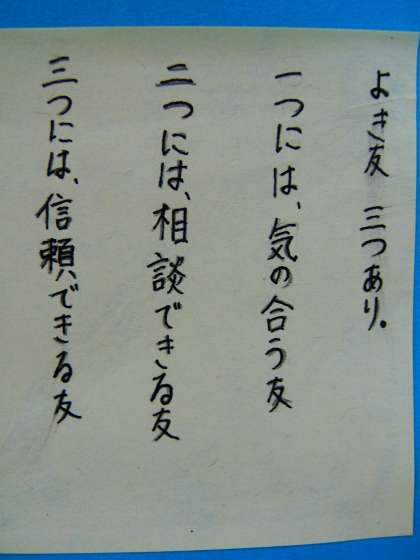 よき友 三つあり。
一つには、気の合う友
二つには、相談できる友
三つには、信頼できる友